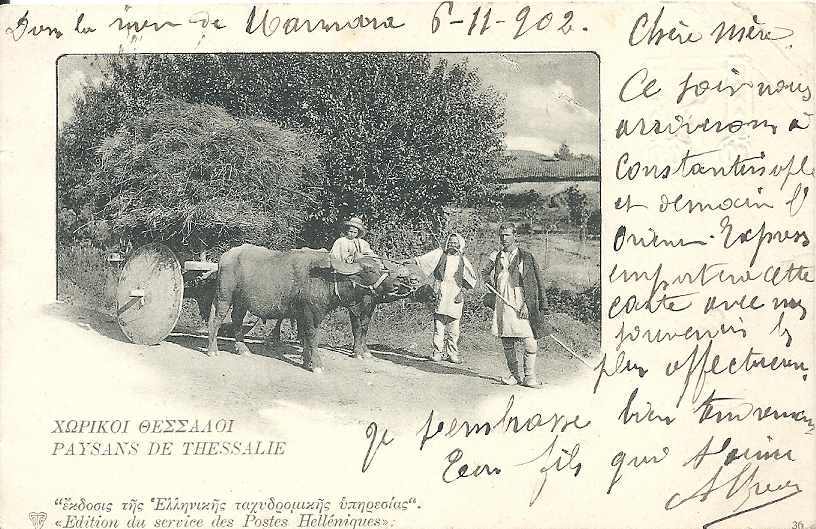 Dans la mer de Marmara 6-11-902.
Chère mère.
Ce soir nous
arriverons à
Constantinople
et demain l'
Orient-Express
emportera cette
carte avec mes
souvenirs les
plus affectueux.
bien tendrement
Je t'embrasse
Ton fils qui t'aime
ΧΩΡΙΚΟΙ ΘΕΣΣΑΛΟΙ
PAYSANS DE THESSALIE
"ἔκδοσις τῆς Ἑλληνικῆς ταχυδρομικῆς ὑπηρεσίας".
«Edition du service des Postes Helléniques».
36